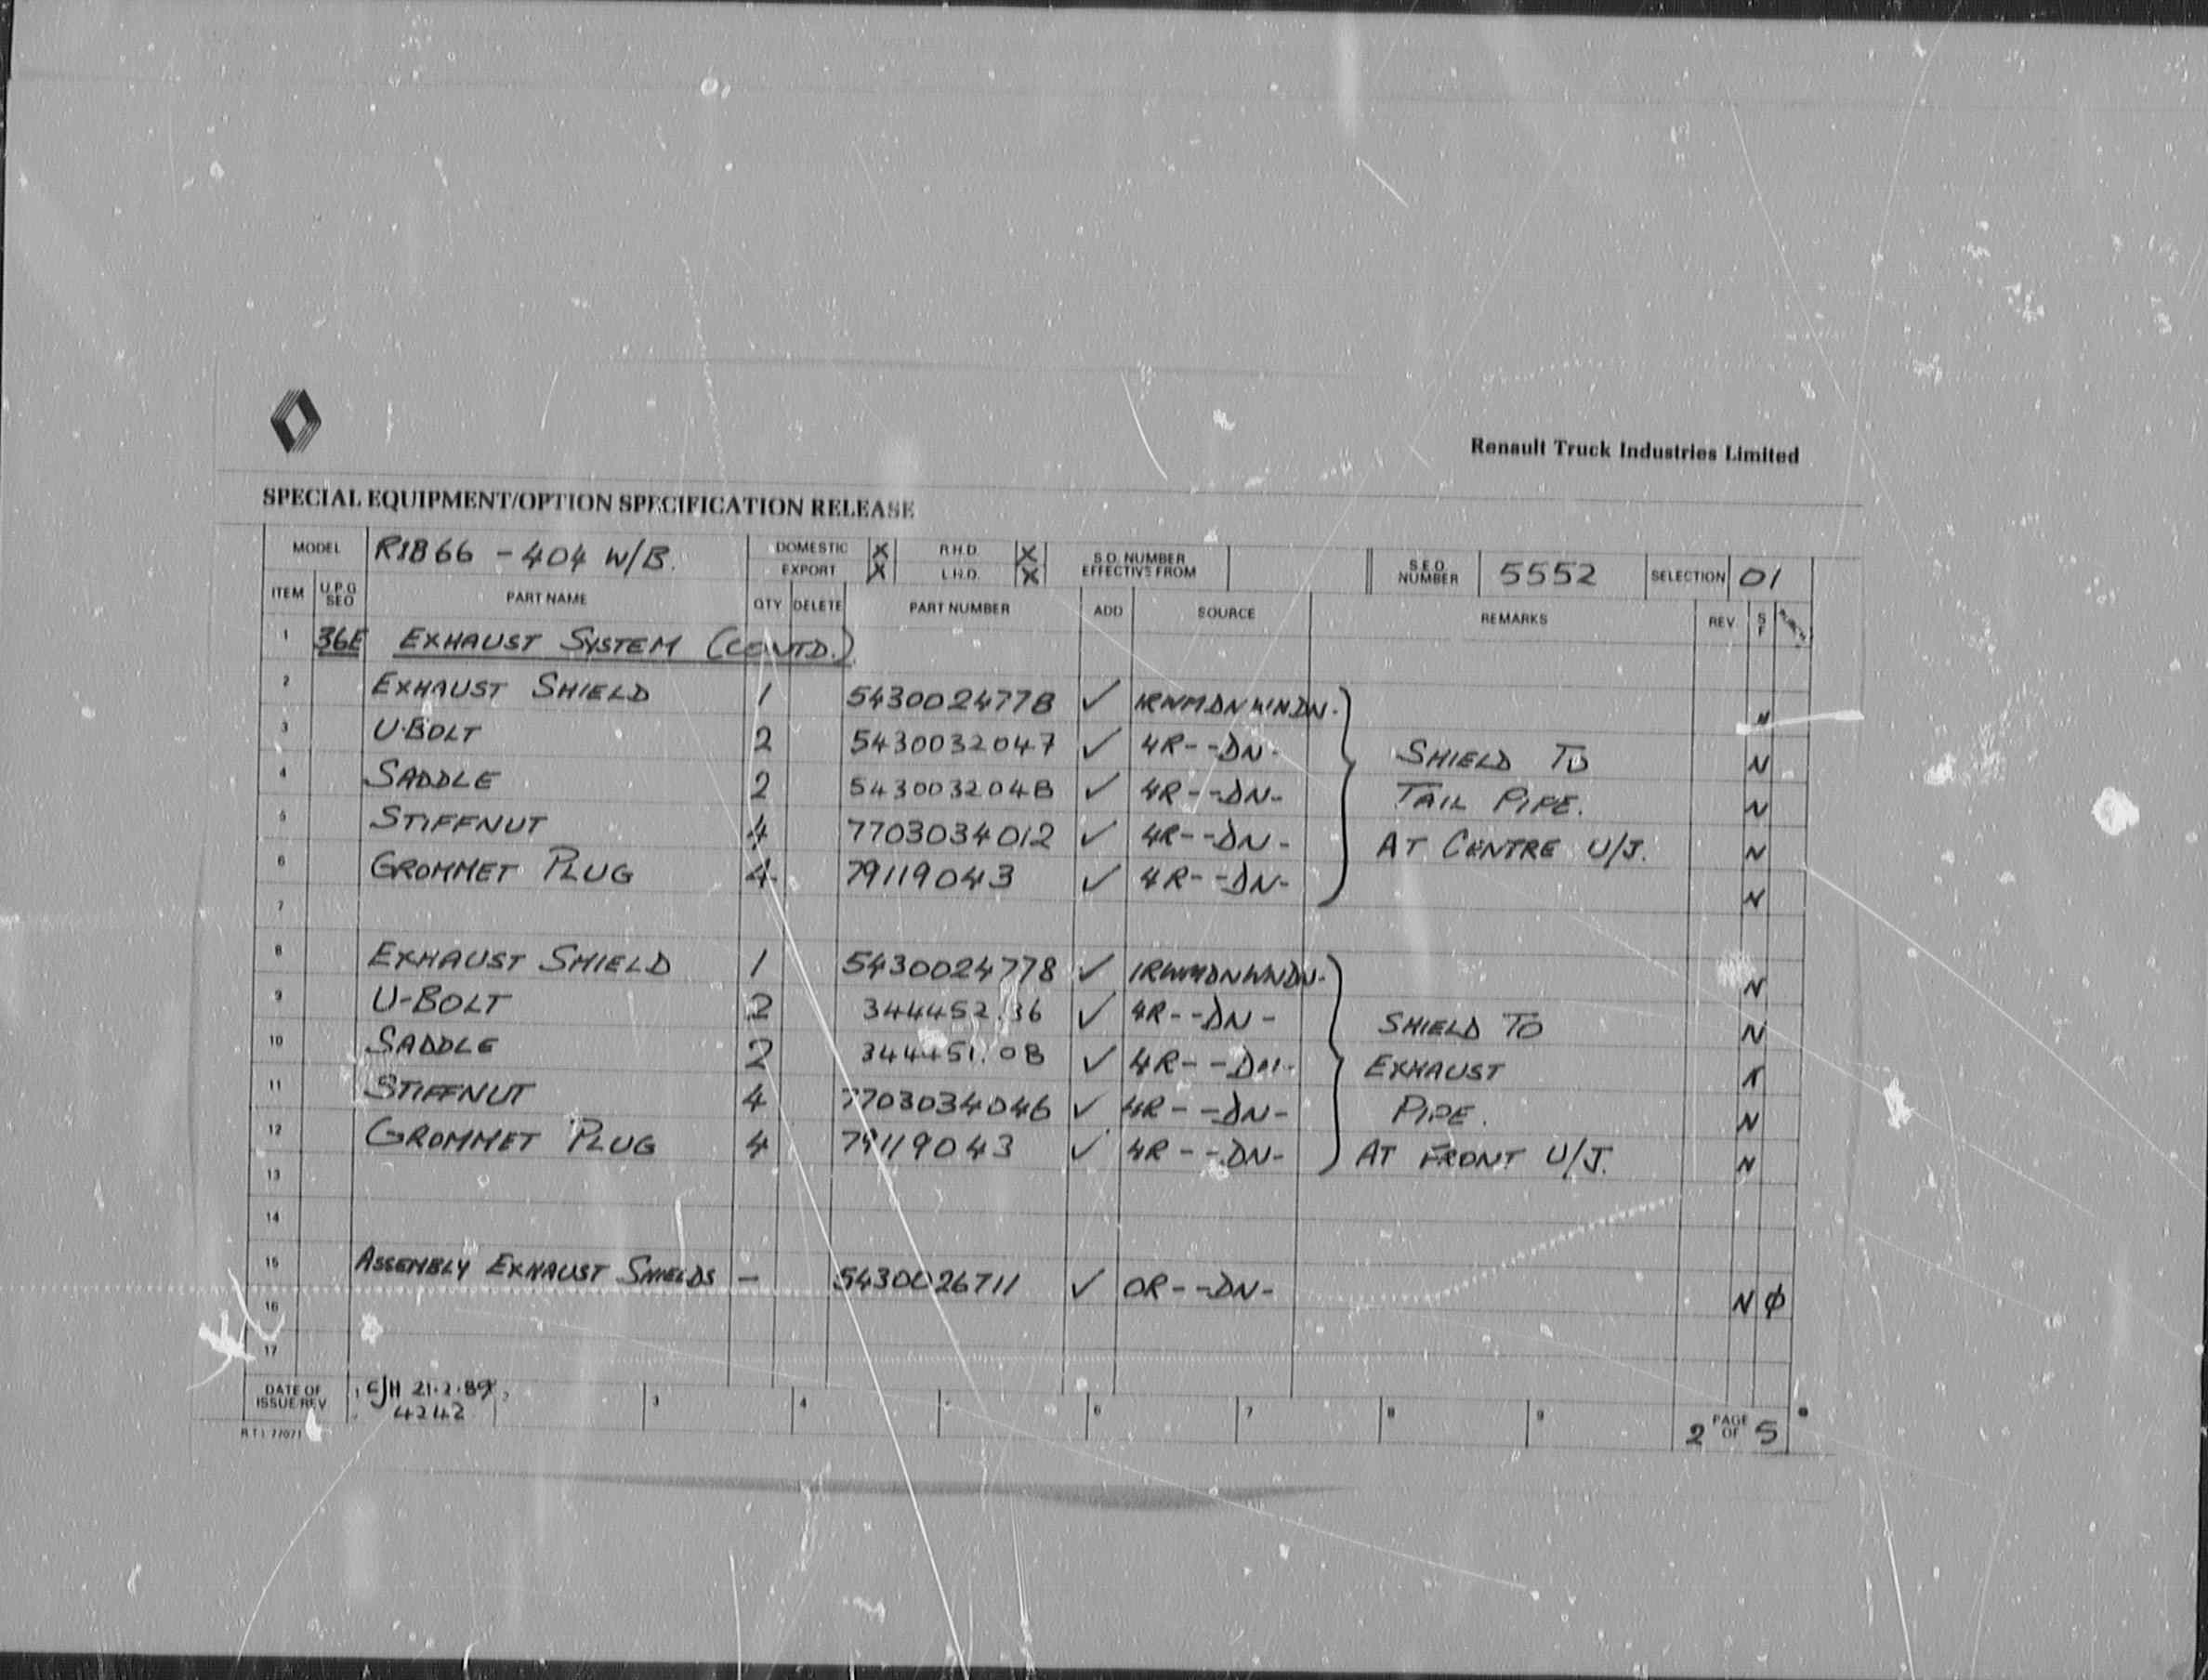 Renault Truck Industries Limited
SPECIAL EQUIPMENT/OPTION SPECIFICATION RELEASE
MODEL R1866 - 404 W/B. DOMESTIC X R.H.D. X S.O. NUMBER EFFECTIVE FROM S.E.O. NUMBER 5552 SELECTION 01
EXPORT X L.H.D. X
ITEM U.P.G SEO PART NAME QTY DELETE PART NUMBER ADD SOURCE REMARKS REV S F
1 36E EXHAUST SYSTEM (CONTD.)
2 EXHAUST SHIELD 1 5430024778 ✓ N
3 U-BOLT 2 5430032047 ✓ 4R--DN- SHIELD TO N
4 SADDLE 2 5430032048 ✓ 4R--DN- TAIL PIPE. N
5 STIFFNUT 4 7703034012 ✓ 4R--DN- AT CENTRE U/J. N
6 GROMMET PLUG 4 79119043 ✓ 4R--DN- N
7
8 EXHAUST SHIELD 1 5430024778 ✓ N
9 U-BOLT 2 344452.36 ✓ 4R--DN- SHIELD TO N
10 SADDLE 2 344451.08 ✓ 4R--DN- EXHAUST
11 STIFFNUT 4 7703034046 ✓ 4R--DN- PIPE. N
12 GROMMET PLUG 4 79119043 ✓ 4R--DN- AT FRONT U/J. N
13
14
15 ASSEMBLY EXHAUST SHIELDS - 5430026711 ✓ OR--DN- N Ø
16
17
DATE OF ISSUE/REV 1 CJH 21.2.89 3 4 6 7 8 9 2 PAGE OF 5
4242
R.T.I. 77071